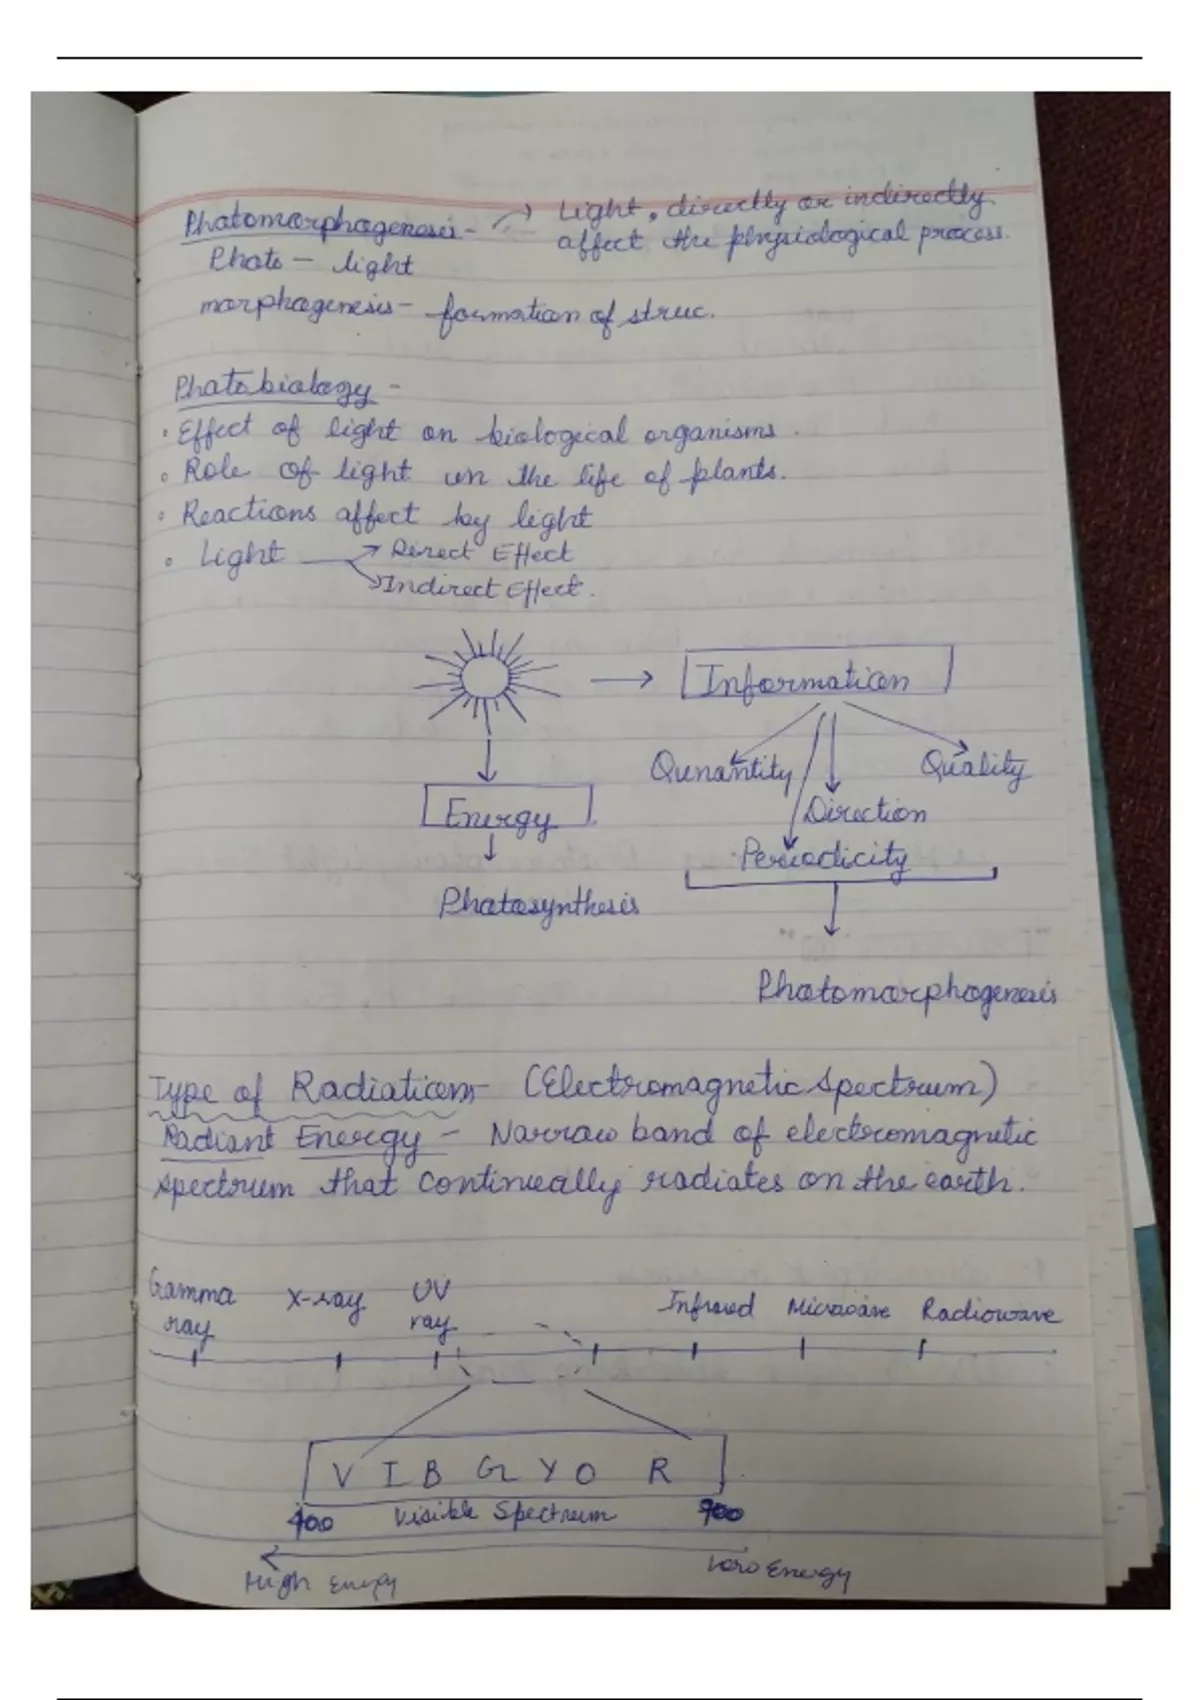 Photomorphogenesis - → Light, directly or indirectly
affect the physiological process.
Photo - light
morphogenesis - formation of struc.
Photobiology -
• Effect of light on biological organisms.
• Role of light in the life of plants.
• Reactions affect by light
• Light → Direct Effect
→ Indirect Effect.
→ Information
Qunantity Quality
Energy Direction
Periodicity
Photosynthesis
Photomorphogenesis
Type of Radiation - (Electromagnetic Spectrum)
Radiant Energy - Narrow band of electromagnetic
spectrum that continually radiates on the earth.
Gamma ray X-ray UV ray Infrared Microwave Radiowave
V I B G Y O R
400 Visible Spectrum 700
High Energy Low Energy